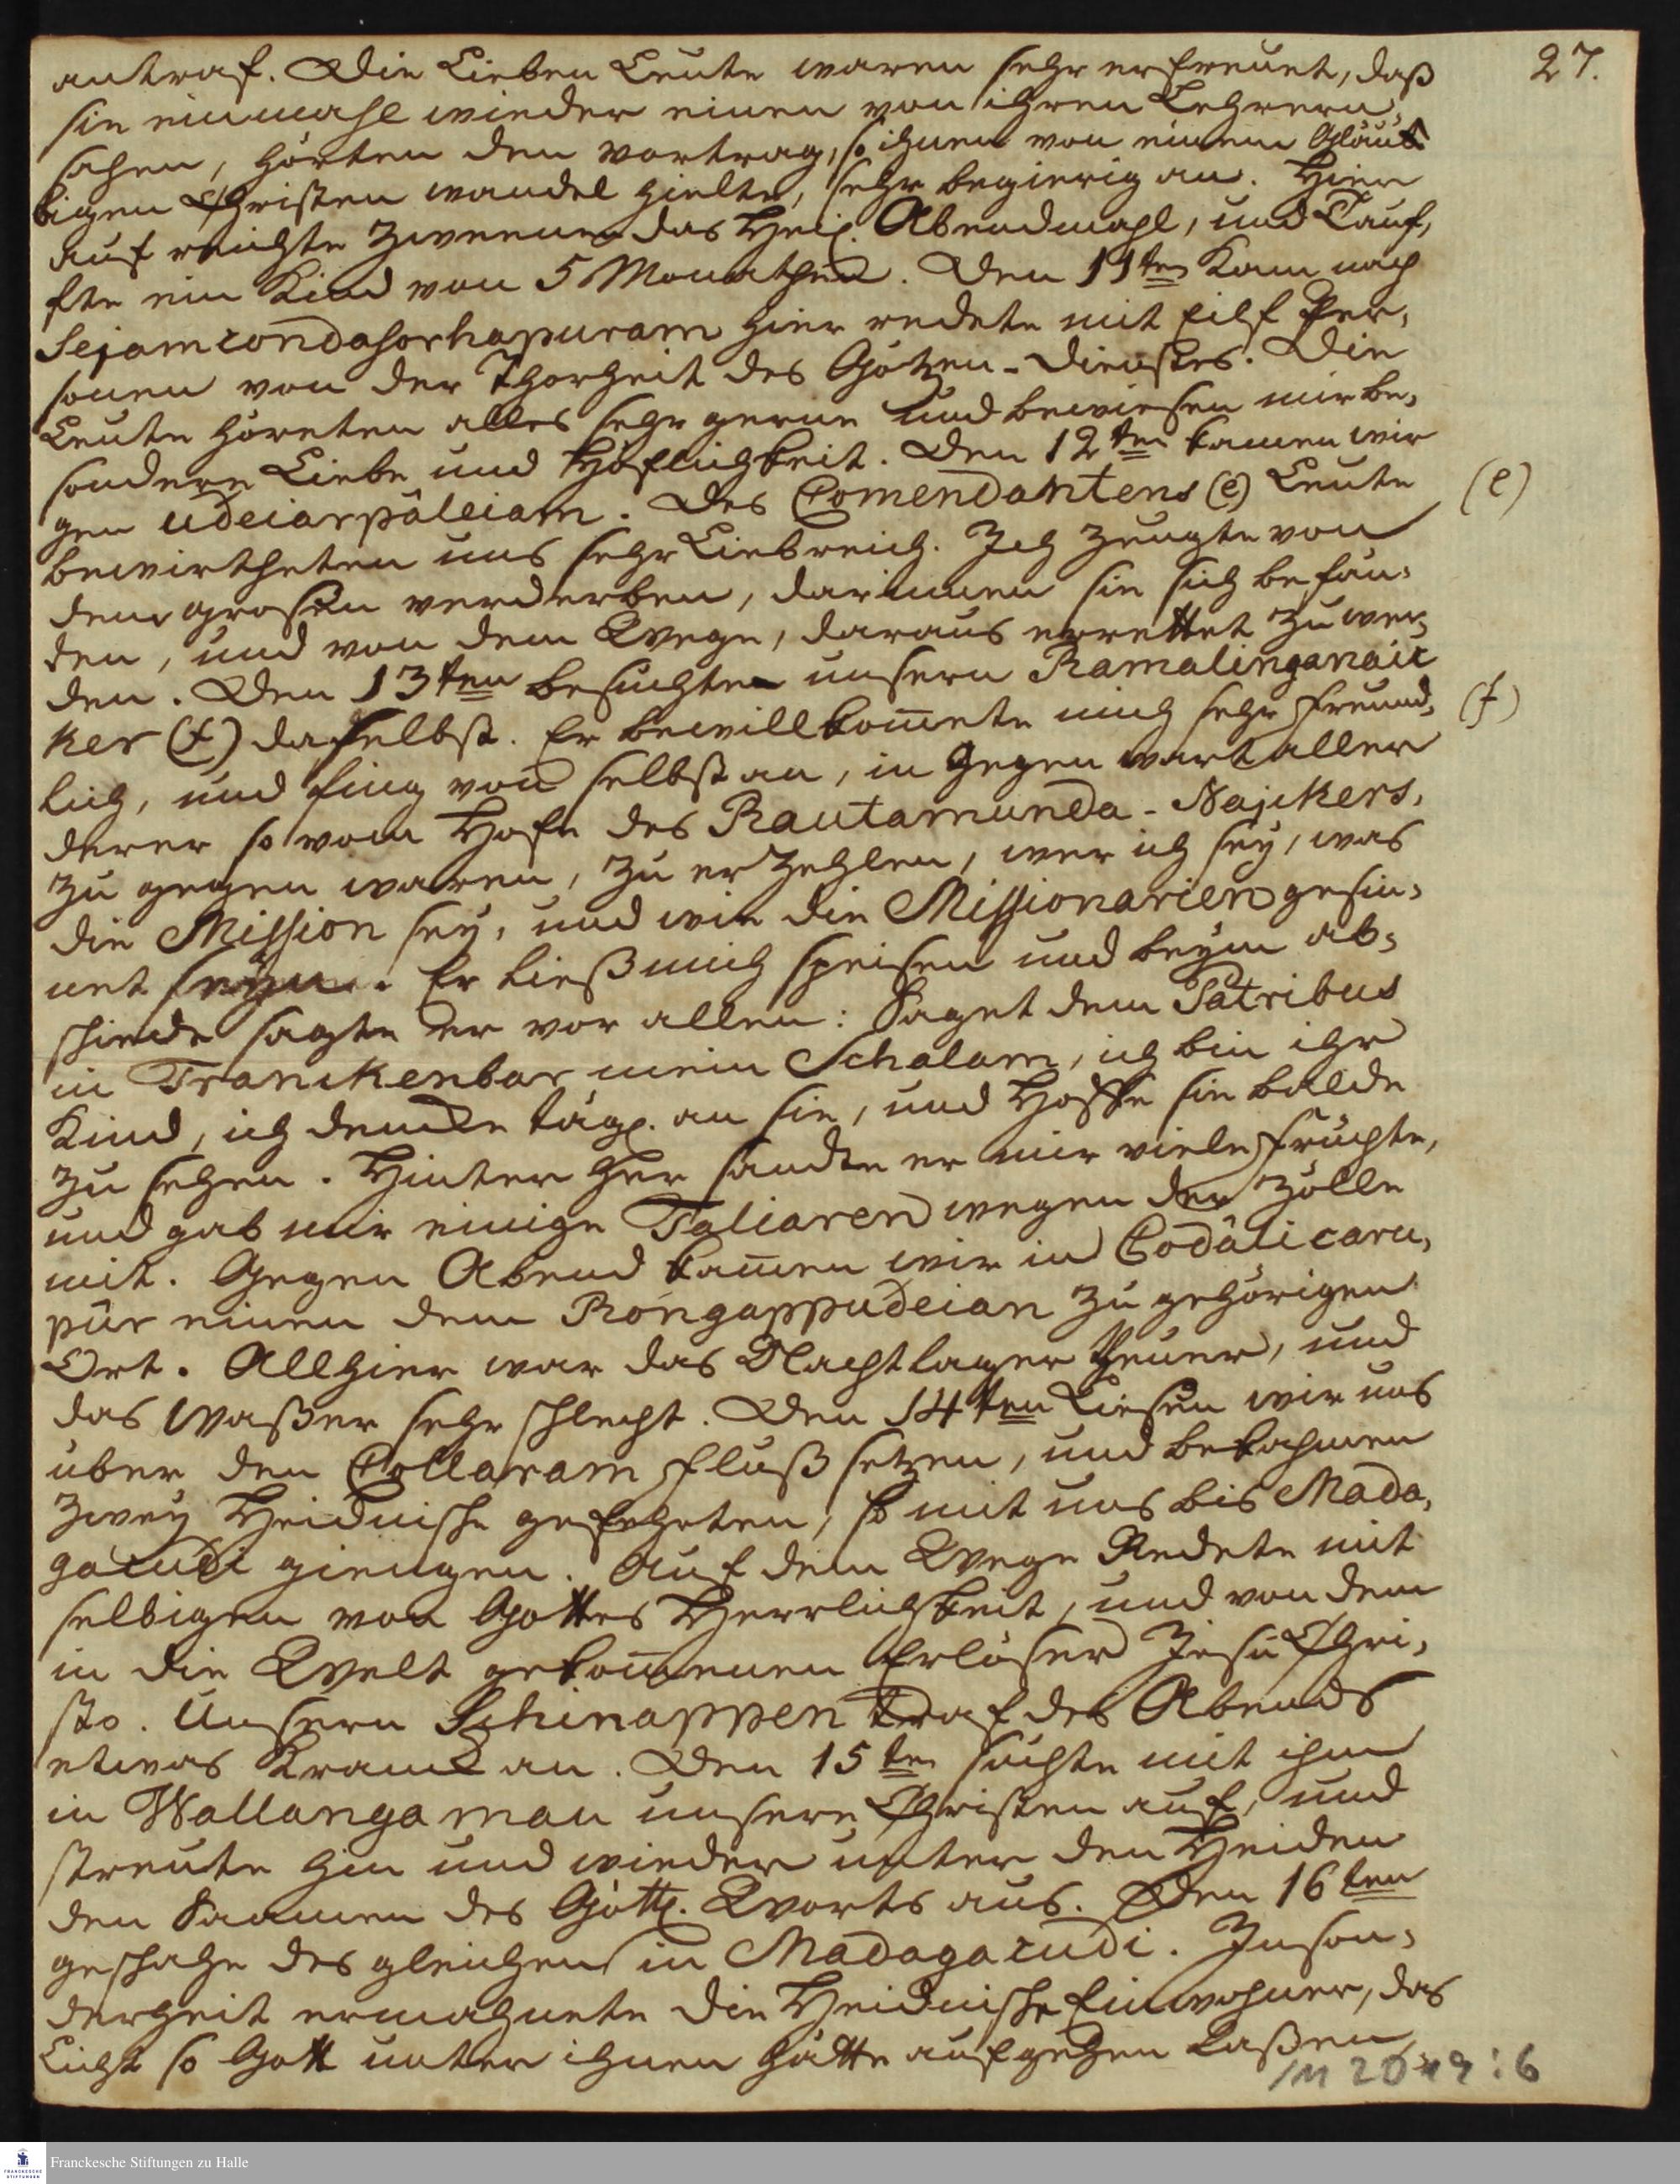 27.
antraf. Die Lieben Leute waren sehr erfreuet, daß
sie einmahl wieder einen von ihren Lehrern
sahen, hörten den Vortrag, so ihnen von einem Gläu-
bigen Christen wandel hielte, sehr begierig an. Hier
auf reichte Zweenen das Heil. Abendmahl, und Tauf,
fte ein Kind von 5 Monathen. Den 11ten Kam nach
Sejamcondasorhapuram hier redete mit Eilf Per,
sonen von der Thorheit des Götzen-Dienstes. Die
Leute höreten alles sehr gerne und bewiesen mir be,
sondere Liebe und Höflichkeit. Den 12ten kamen wir
gen udeiarpâleiam. Des Comendantens (e) Leute
(e)
bewirtheten uns sehr Liebreich. Ich Zeugte von
dem grosen verderben, darinnen sie sich befän,
den, und von dem Wege, daraus errettet Zu wer,
den. Den 13ten besuchte unsern Ramalinganaic
ker (f) daselbst. Er bewillkom̄ete mich sehr freund,
(f)
lich, und fing von selbst an, in Gegenwart aller
derer so vom Hofe des Rautamunda-Najckers,
Zu gegen waren, Zu er Zehlen, wer ich seÿ, was
die Mission seÿ, und wie die Missionarien gesin,
net seÿn. Er ließ mich speisen und beÿm ab,
schiede sagte er vor allen: Saget dem Patribus
in Tranckenbar mein Schalam, ich bin ihr
Kind, ich dencke tägl. an sie, und Hoffe sie balde
Zu sehen. Hinter her sandte er mir viele früchte,
und gab mir einige Taliaren wegen der Zölle
mit. Gegen Abend kam̄en wir in Codâlicaru,
pûr einen dem Rongappudeian Zu gehörigen
Ort. Allhier war das Nachtlager theuer, und
das Waßer sehr schlecht. Den 14ten Liesen wir uns
über den Collaram fluß setzen, und bekahmen
Zweÿ Heidnische gefehrten, so mit uns bis Mada,
gacudi giengen. Auf dem Wege Redete mit
selbigen von Gottes Herrlichkeit, und von dem
in die Welt gekom̄enen Erlöser Jesu Chri,
sto. Unsern Schinappen traf des Abends
etwas Kranck an. Den 15ten suchte mit ihm
in Wallangaman unsere Christen auf, und
streute hin und wieder unter den Heiden
den Saamen des Göttl. Worts aus. Den 16ten
geschahe des gleichen in Madagacudi. Inson,
derheit ermahnete die Heidnische Einwohner, das
Licht so Gott unter ihnen hätte aufgehen Laßen,
M 2 D 49 : 6
FRANCKESCHE STIFTUNGEN
Franckesche Stiftungen zu Halle